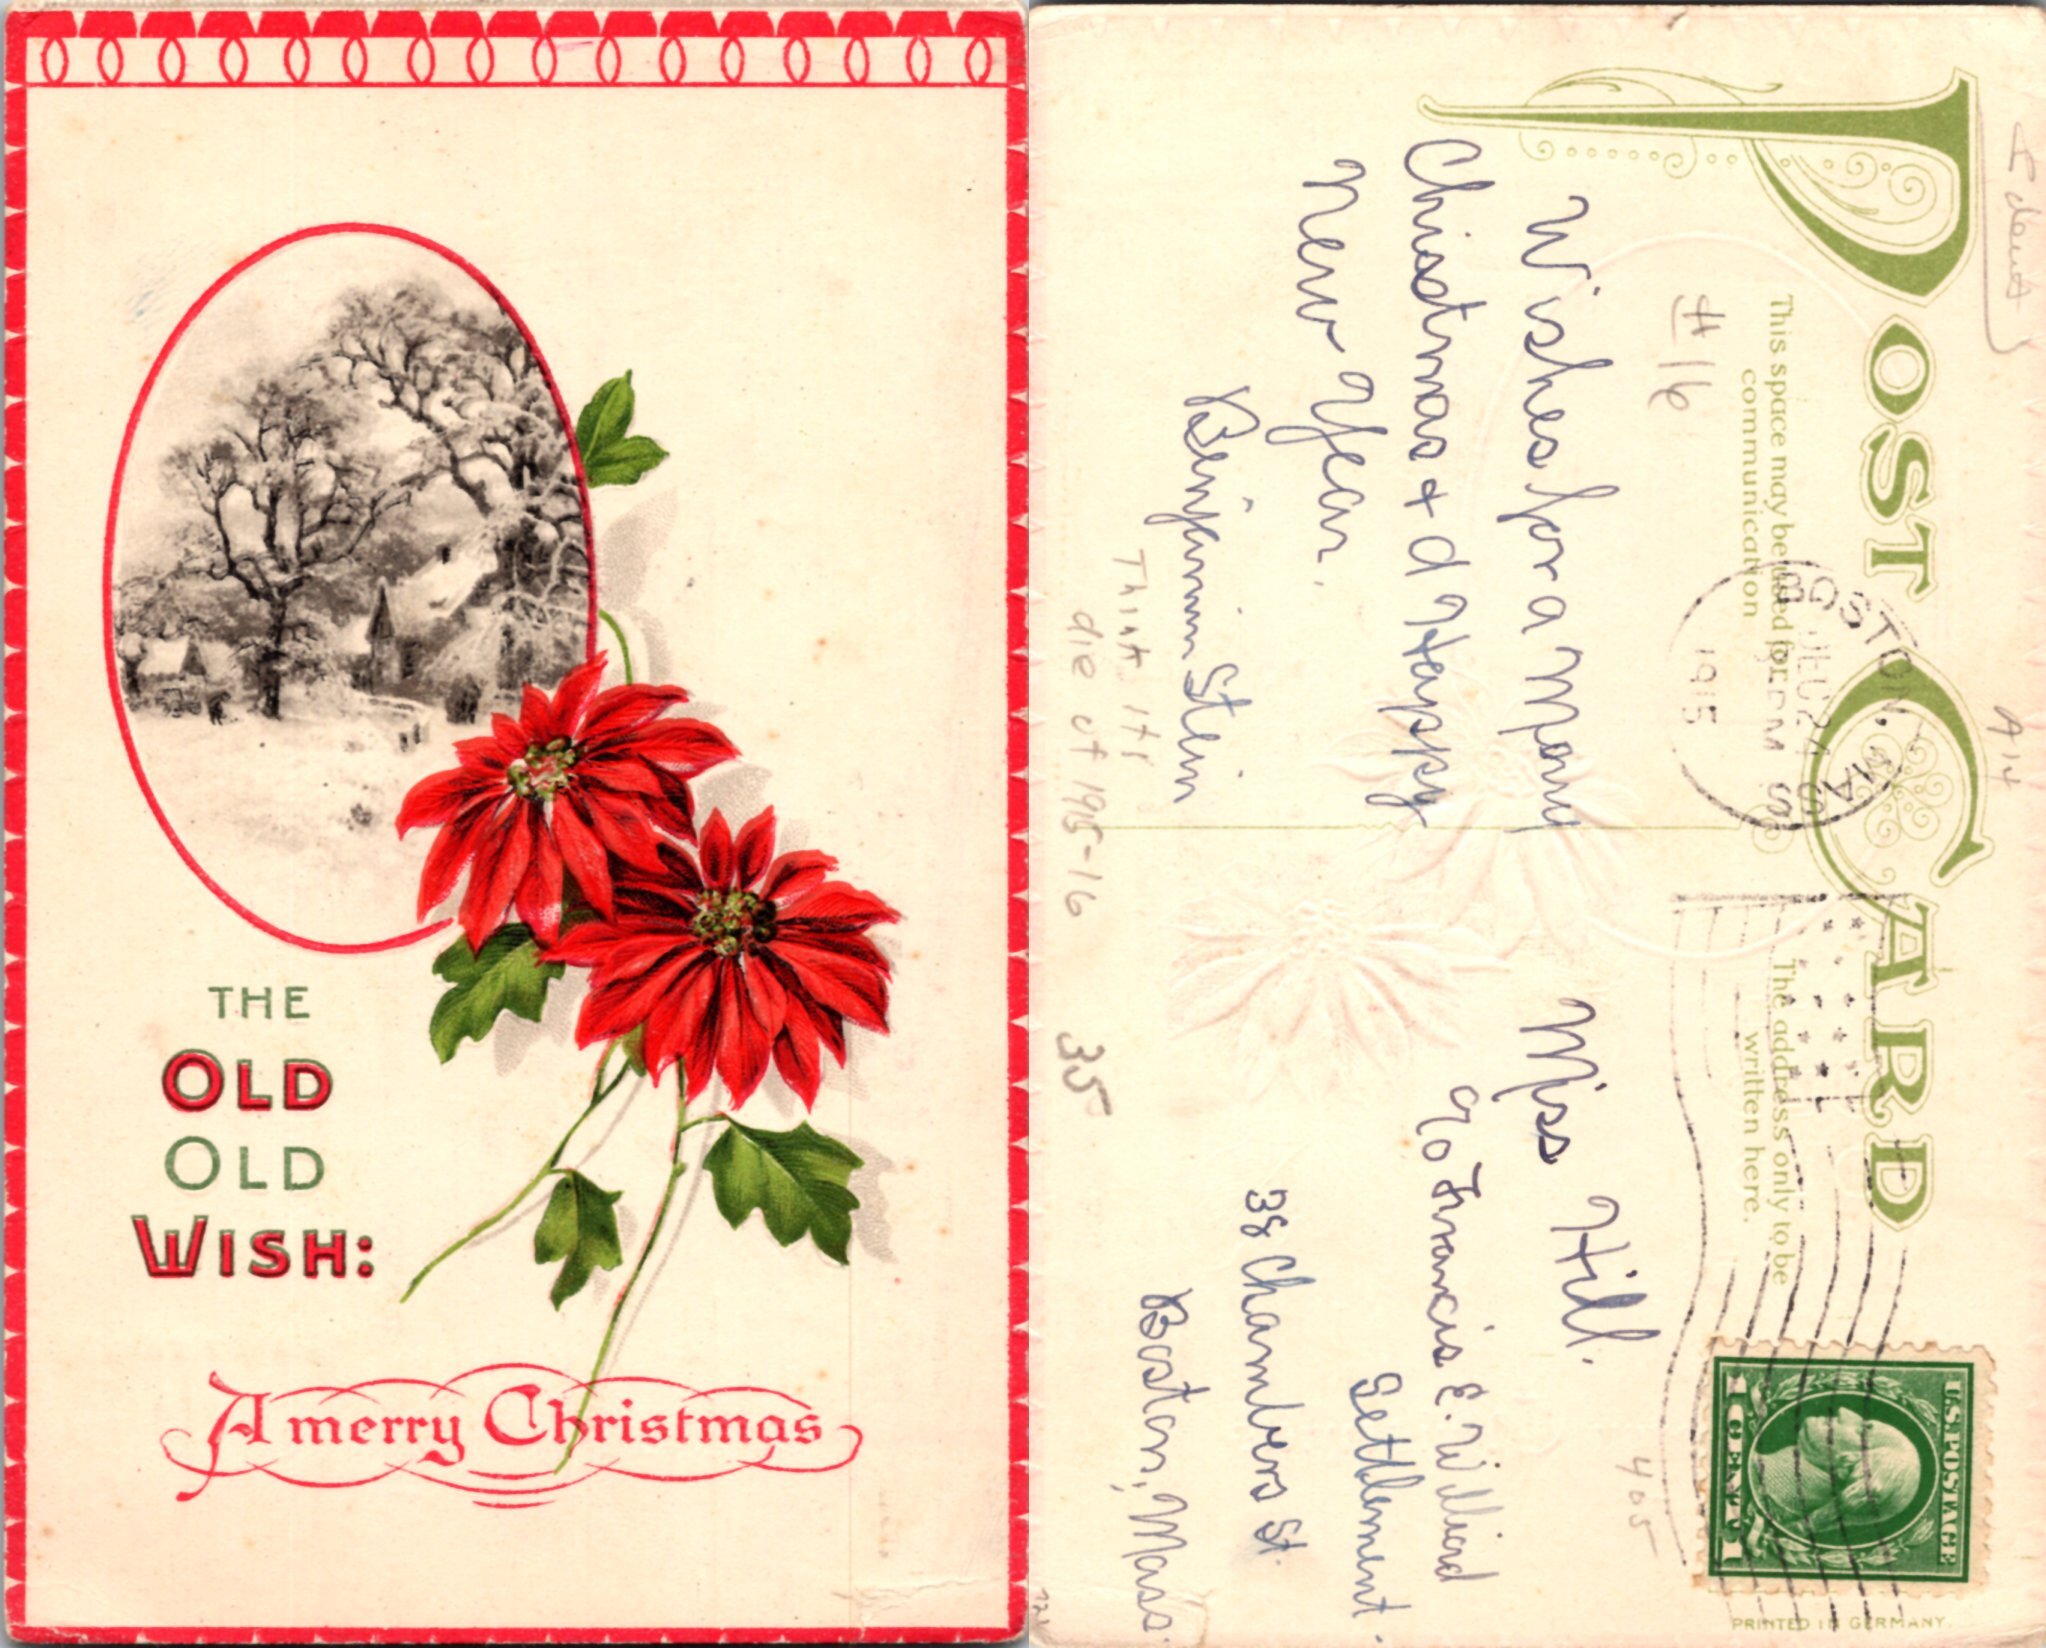 THE
OLD
OLD
WISH:
A merry Christmas
POST CARD
This space may be used for
communication
The address only to be
written here.
BOSTON, MASS.
1915
U.S. POSTAGE
1 CENT 1
A14
#16
405
Wishes for a Many
Christmas + a Happy
New Year.
Benjamin Stein
Think its
die of 1915-16
35
Miss Hill.
c/o Francis E. Williard
Settlement.
38 Chambers St.
Boston, Mass.
PRINTED IN GERMANY.